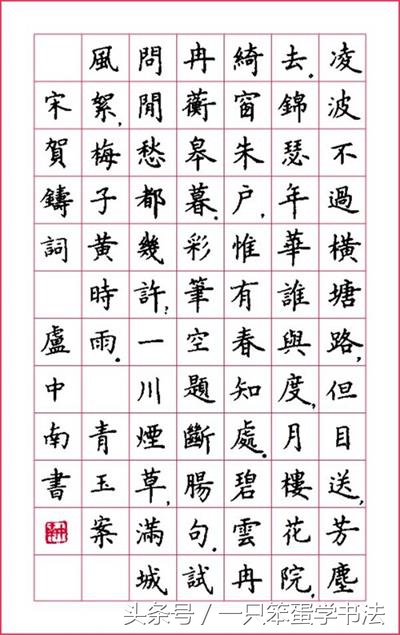 凌波不過橫塘路,但目送,芳塵
去.錦瑟年華誰與度,月樓花院,
綺窗朱户,惟有春知處.碧雲冉
冉蘅皋暮,彩筆空題斷腸句.試
問閒愁都幾許,一川煙草,滿城
風絮,梅子黃時雨. 青玉案
宋賀鑄詞 盧中南書
头条号 / 一只笨蛋学书法